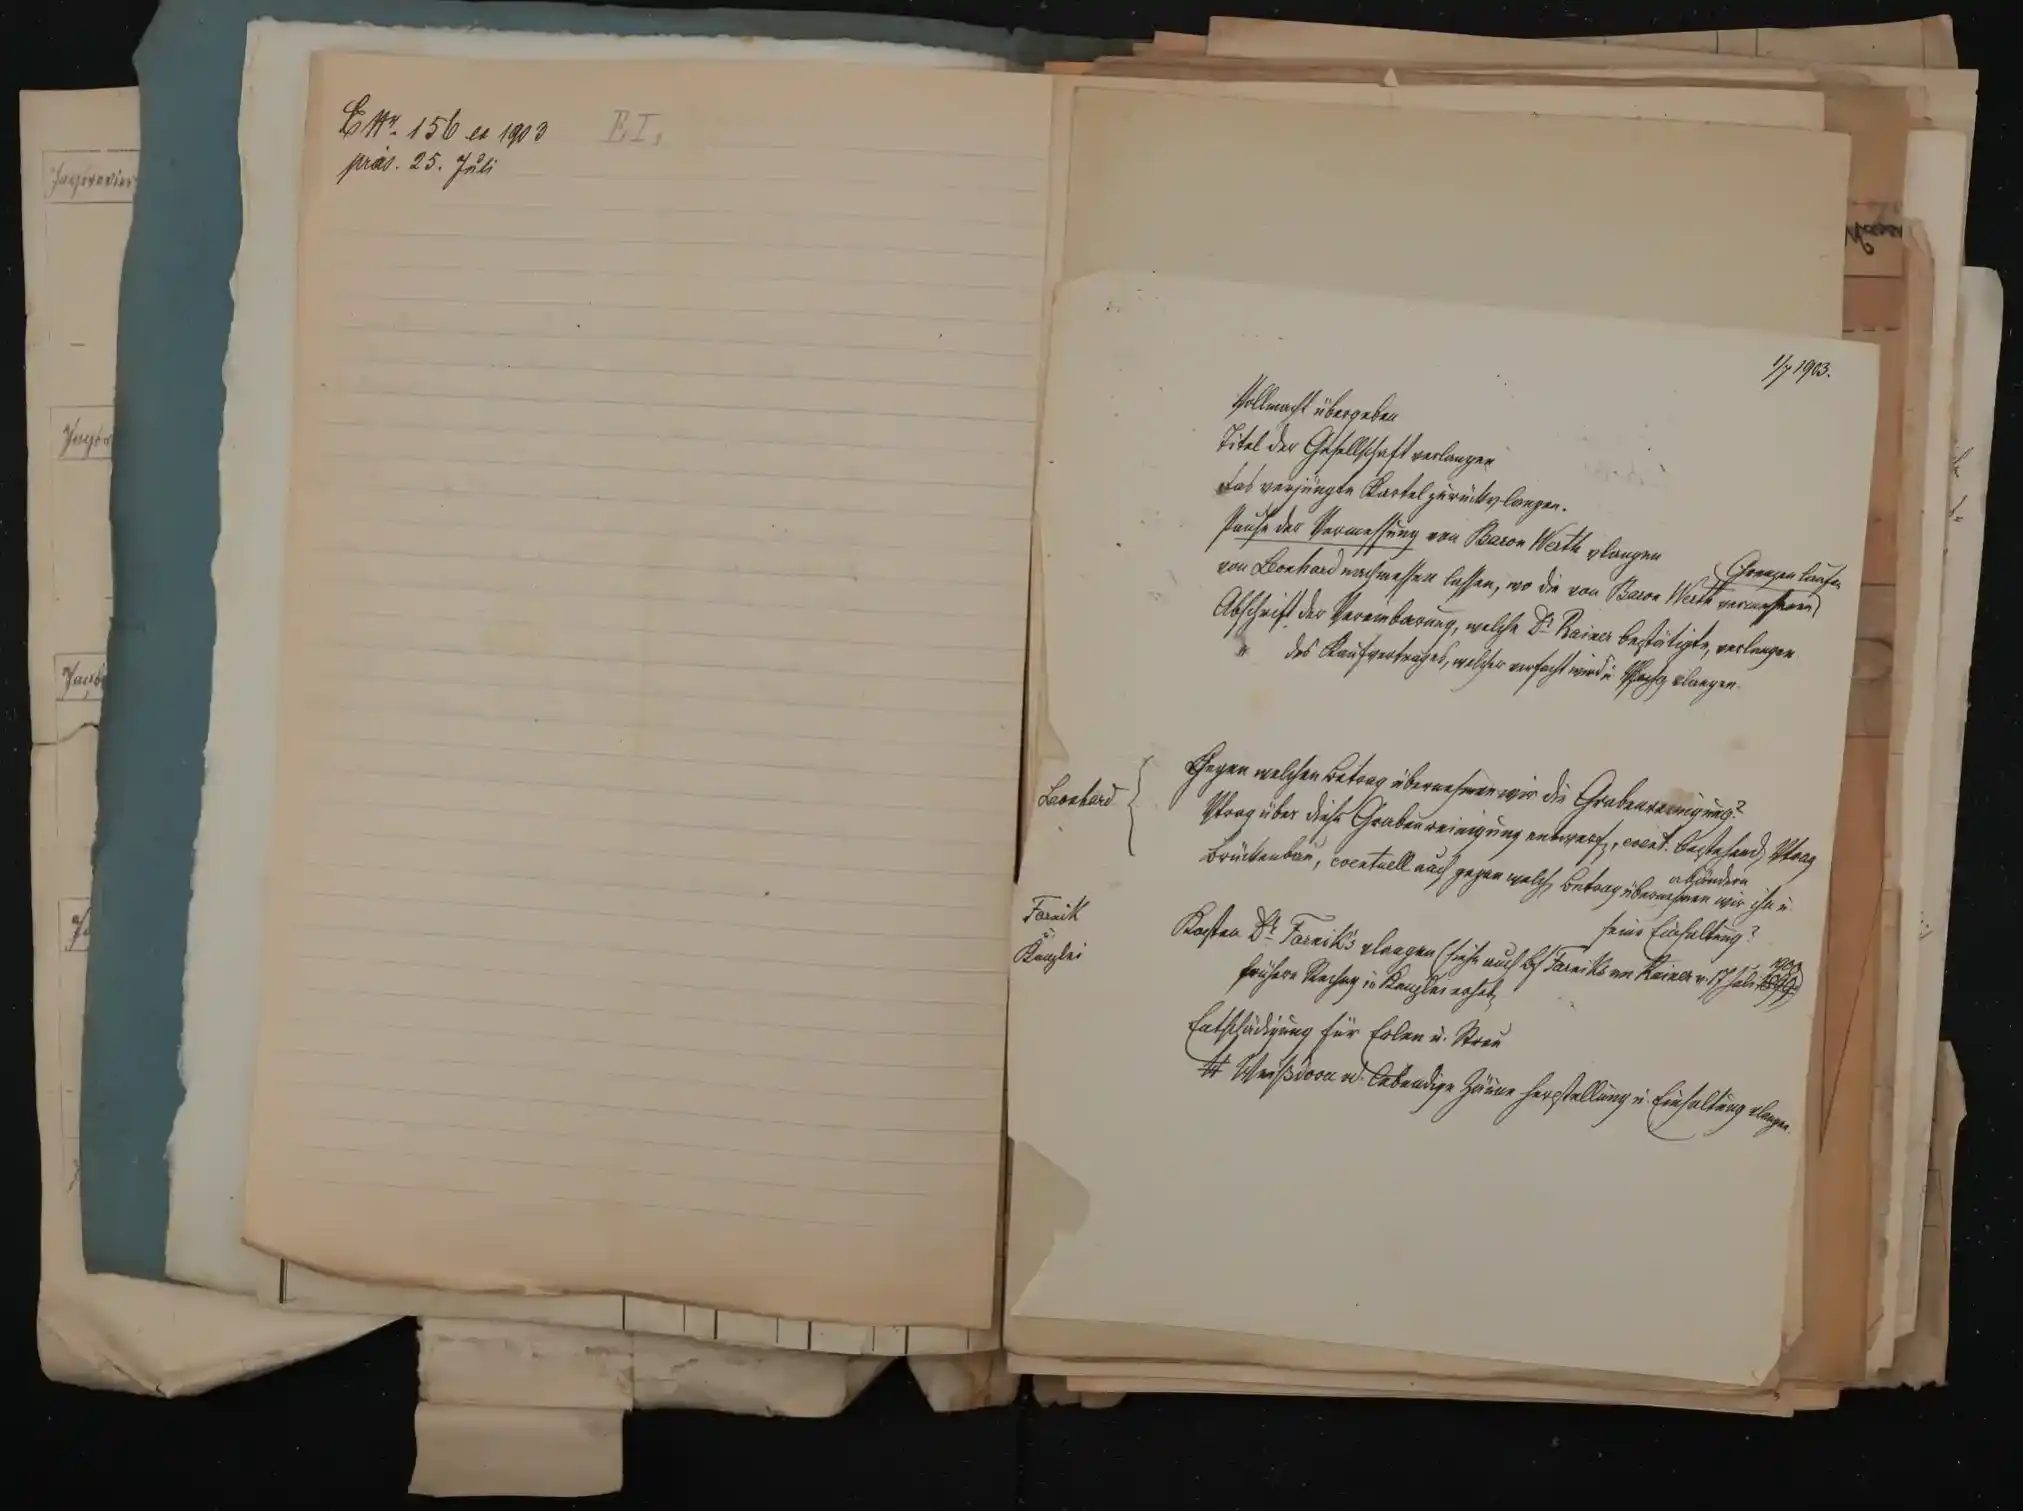 E Nr. 156 ex 1903
präs. 25. Juli
E.I.
1/7 1903.
Vollmacht übergeben
Titel der Gesellschaft verlangen
das verjüngte Kartel zurückvlangen.
Pause der Vermessung von Baron Werth vlangen
von Leonhard nachmessen lassen, wo die von Baron Werth vermessenen
Grenzen laufen
Abschrift der Vereinbarung, welche Dr Rainer bestätigte, verlangen
" des Kaufvertrages, welcher verfasst wird u. vlangen.
Leonhard
Gegen welchen Betrag übernehmen wir die Grabenreinigung?
Vtrag über diese Grabenreinigung entwerf, event. bestehend Vtrag
abändern
Brückenbau, eventuell auch gegen welch Betrag übernehmen wir ihn u.
seine Einhaltung?
Farnik
u.
Kanzlei
Kosten Dr Farnik's vlangen (siehe auch Bf Farniks an Rainer v. 17 Juli 1900)
frühere Rechng in Kanzlei erheb
Entschädigung für Erlen u. Streu
Weißdorn od. lebendige Zäune Herstellung u. Einhaltung vlangen.
Jagdrevier